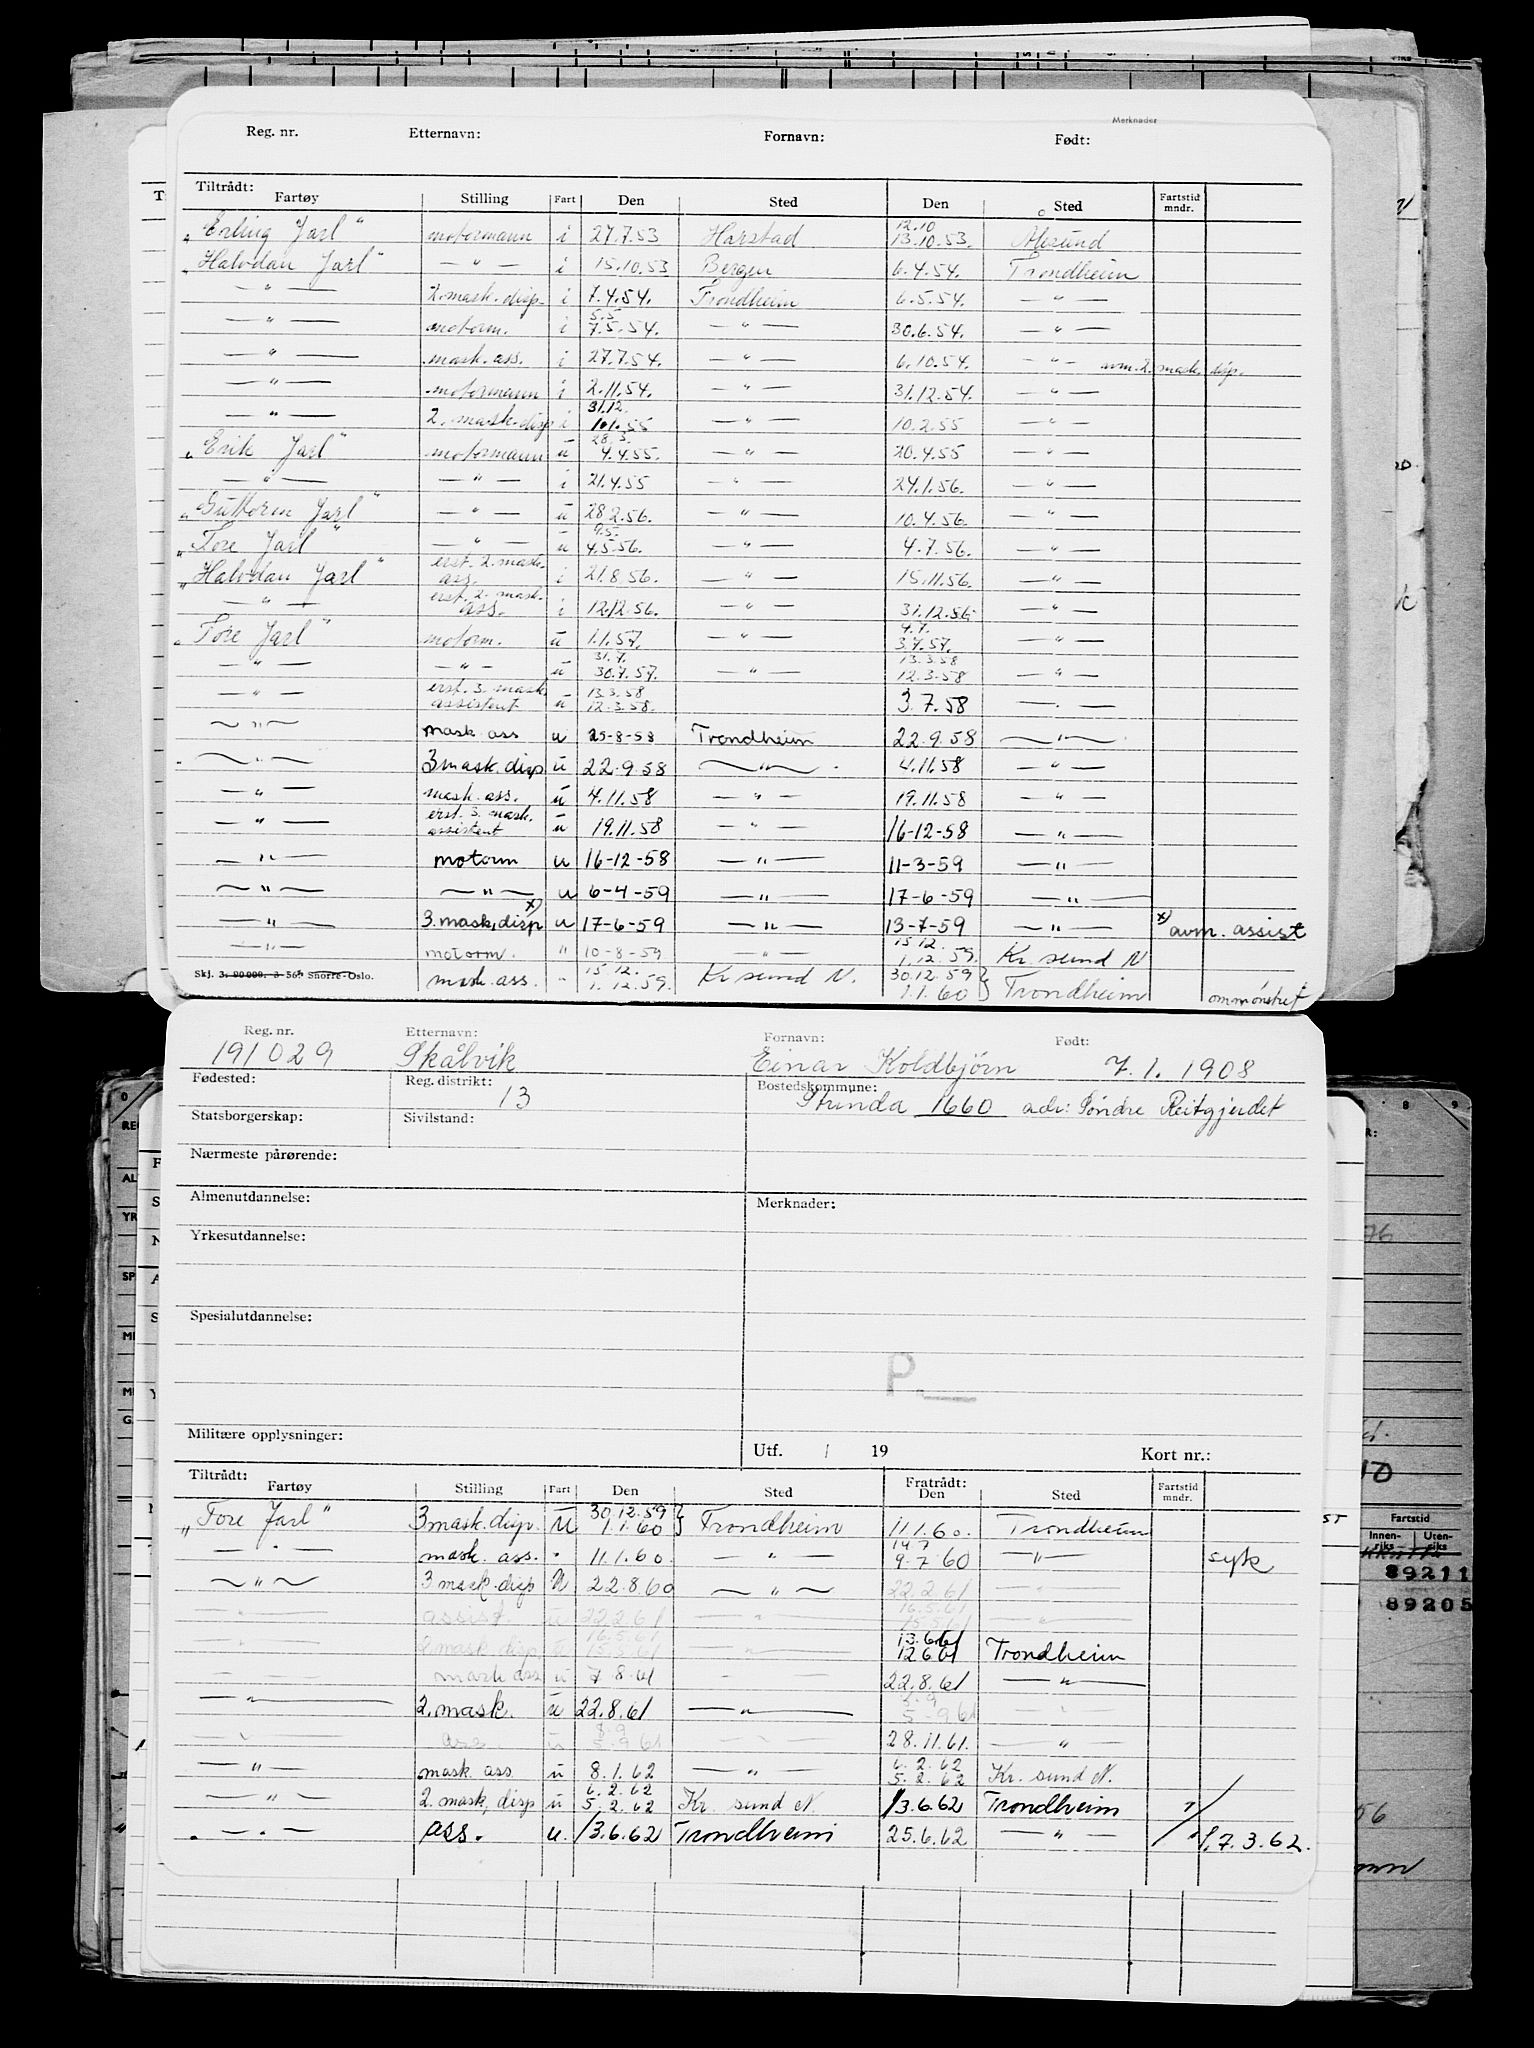 Merknader
Reg. nr. Etternavn: Fornavn: Født:
Tiltrådt:
Fartøy Stilling Fart Den Sted Den Sted Fartstid mndr.
12.10
„Erling Jarl“ motormann i 27.7.53 Harstad 13.10.53. Ålesund
„Halvdan Jarl“ — " — i 15.10.53 Bergen 6.4.54. Trondheim
— " — 2. mask. disp. i 7.4.54. Trondheim 6.5.54. — " —
5.5
— " — motorm. i 7.5.54. — " — 30.6.54. — " —
— " — mask. ass. i 27.7.54. — " — 6.10.54. — " — avm. 2. mask. disp.
— " — motormann i 2.11.54. — " — 31.12.54. — " —
31.12.
— " — 2. mask. disp i 1.1.55 — " — 10.2.55 — " —
28.3.
„Erik Jarl“ motormann u 4.4.55. — " — 20.4.55 — " —
— " — — " — i 21.4.55 — " — 24.1.56. — " —
„Guttorm Jarl“ — " — u 28 2.56. — " — 10.4.56. — " —
9.5.
„Tore Jarl“ — " — u 4.5.56. — " — 4.7.56. — " —
„Halvdan Jarl“ erst. 2. mask. ass. i 21.8.56. — " — 15.11.56. — " —
— " — erst. 2. mask. ass. i 12.12.56. — " — 31.12.56 — " —
4.7.
„Tore Jarl“ motorm. u 1.1.57. — " — 3.7.57. — " —
31.7. 13.3.58
— " — — " — u 30.7.57. — " — 12.3.58 — " —
13.3.58
— " — erst. 3. mask. assistent u 12.3.58. 3.7.58 — " —
— " — mask ass u 25-8-58 Trondheim 22.9.58 — " —
— " — 3 mask. disp u 22.9.58 — " — 4.11.58 — " —
— " — mask. ass. u 4.11.58 — " — 19.11.58 — " —
— " — erst. 3. mask. assistent u 19.11.58 — " — 16-12-58 — " —
— " — motorm u 16-12-58 — " — 11-3-59 — " —
— " — — " — u 6-4-59 — " — 17-6-59 — " —
— " — 3. mask, disp x) u 17-6-59 — " — 13-7-59 — " — x) avm. assist
15.12.
— " — motorm. " 10-8-59 — " — 1.12.59. Kr. sund N
Skj. 3. 90 000. 3-56. Snorre-Oslo.
15.12. 30.12.59 }
mask. ass. " 1.12.59. Kr sund N. 1.1.60 } Trondheim ommønstret
Reg. nr. Etternavn: Fornavn: Født:
191029 Skålvik Einar Koldbjørn 7.1.1908
Fødested: Reg. distrikt: Bostedskommune:
13 Strinda 1660 adr: Söndre Reitgjerdet
Statsborgerskap: Sivilstand:
Nærmeste pårørende:
Almenutdannelse: Merknader:
Yrkesutdannelse:
Spesialutdannelse:
P.
Militære opplysninger:
Utf. / 19 Kort nr.:
Tiltrådt: Fratrådt:
Fartøy Stilling Fart Den Sted Den Sted Fartstid mndr.
30.12.59 }
„Tore Jarl“ 3 mask. disp. u 1.1.60 } Trondheim 11.1.60. Trondheim
14.7
— " — mask. ass. " 11.1.60. — " — 9.7 60 — " — syk
— " — 3 mask. disp u 22.8.60 — " — 22.2.61 — " —
16.5.61
— " — assist. u 22.2.61 — " — 15.5.61 — " —
16.5.61 13.6.61
— " — 2 mask disp u 15.5.61 — " — 12.6.61 Trondheim
— " — mask ass u 7.8.61 — " — 22.8.61 — " —
8.9
— " — 2. mask. u 22.8.61 — " — 5.9.61 — " —
8.9
— " — ass u 5.9.61 — " — 28.11.61. — " —
6.2.62
— " — mask ass u 8.1.62 — " — 5.2.62 Kr. sund N.
6.2.62
— " — 2. mask, disp u 5.2.62 Kr. sund N. 13.6.62 Trondheim
— " — ass. u. 13.6.62 Trondheim 25.6.62 — " — 1.7.3.62.
Fartstid
Innenriks Utenriks
89211
89205